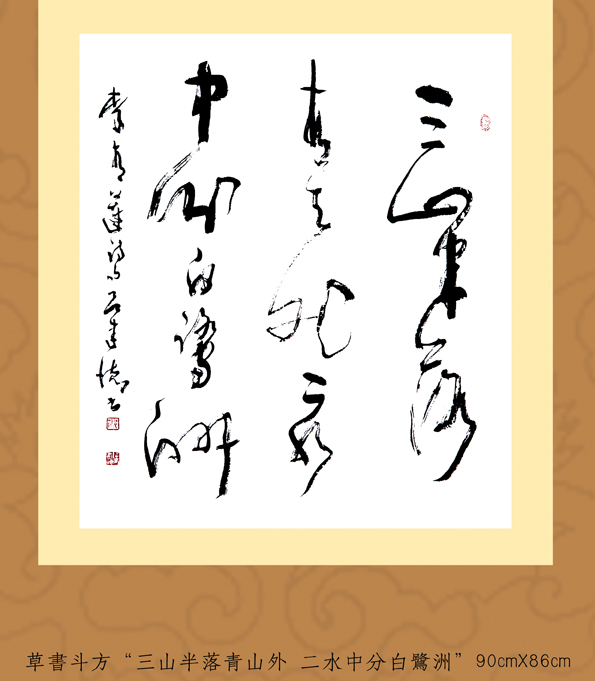 三山半落
青天外二水
中分白鷺洲
李青蓮詩
草書斗方“三山半落青山外 二水中分白鷺洲” 90cmX86cm